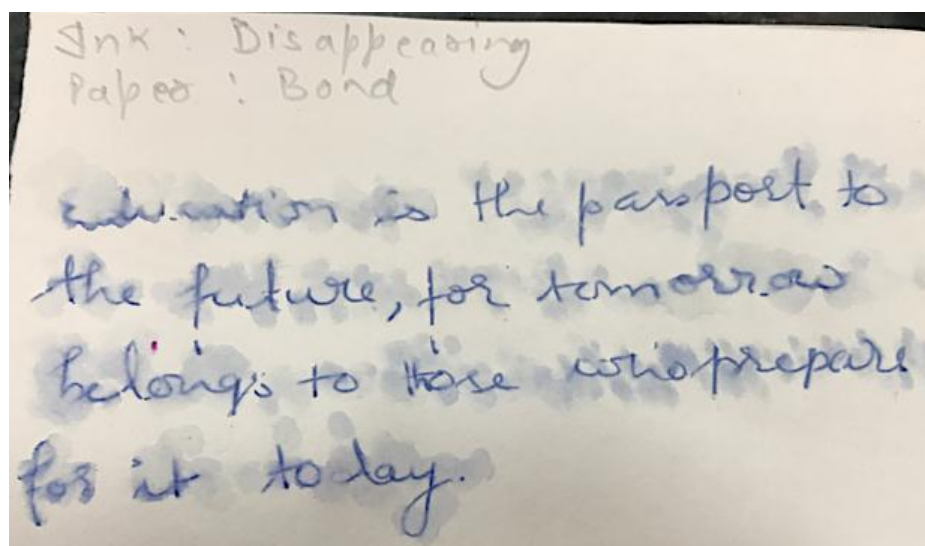 Ink : Disappearing
Paper : Bond
education is the passport to
the future, for tomorrow
belongs to those who prepare
for it today.